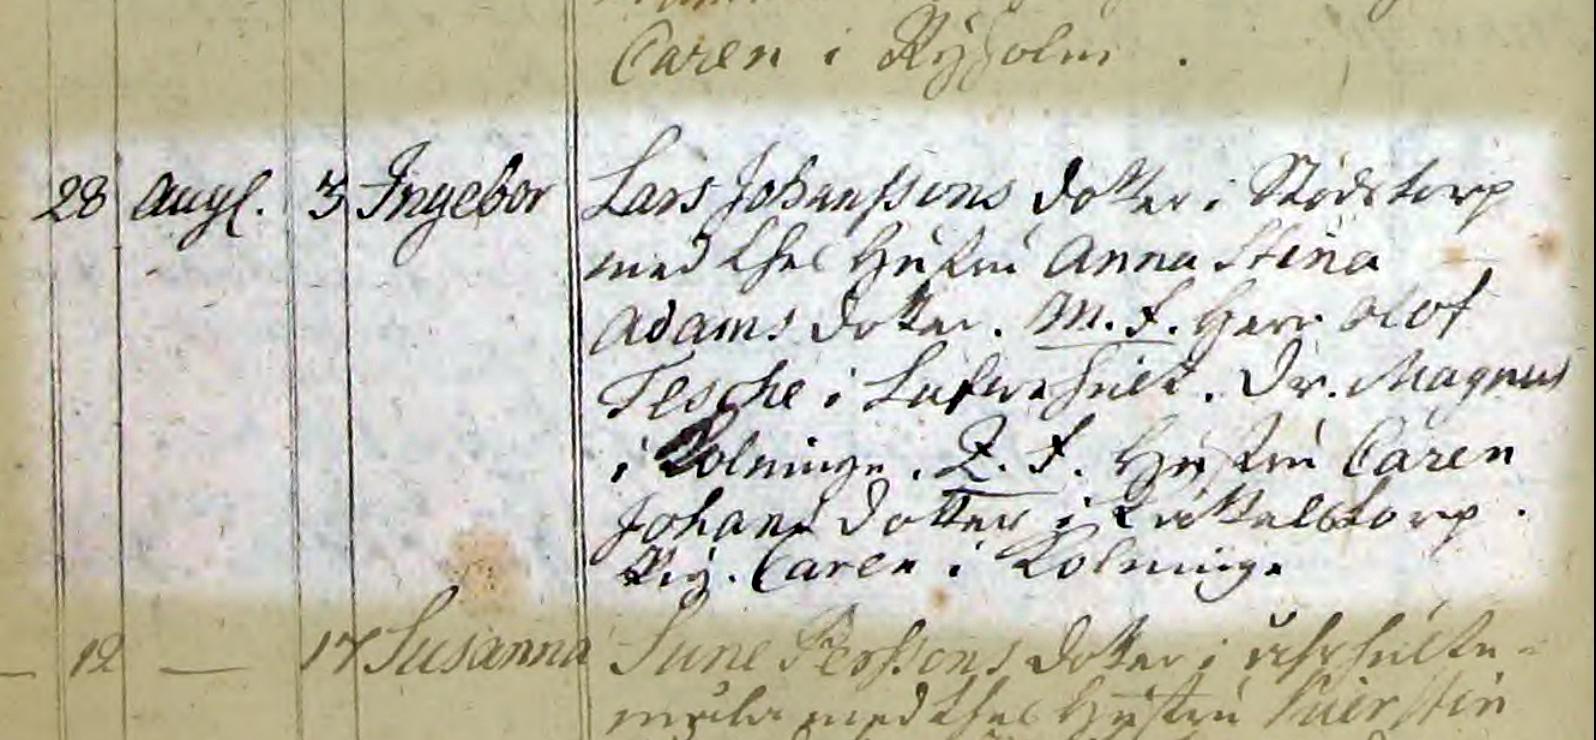 Caren i Ryholm.
28 Augl. 3 Ingebor Lars Johanssons dotter i Stödstorp
med thes Hustru Anna Stina
Adams dotter. M. F. Herr Olof
Tesche i . Dr. Magnus
i Kolninge. Q. F. Hustru Caren
Johans dotter i
Pig. Caren i Kolninge
12 — 17 Susanna Sune Perssons dotter i
med thes Hustru Kierstin